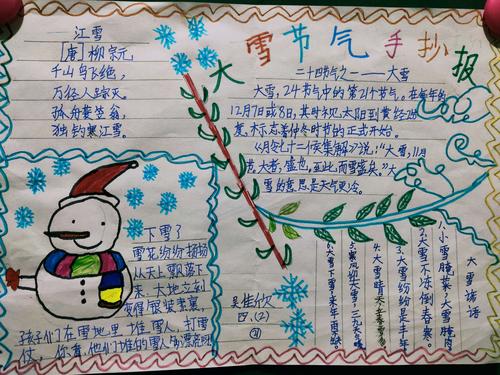 大雪节气手抄报
江雪
[唐]柳宗元
千山鸟飞绝,
万径人踪灭。
孤舟蓑笠翁,
独钓寒江雪。
二十四节气之一——大雪
大雪,24节气中的第21个节气。在每年的
12月7日或8日,其时视太阳到黄经255
度。标志着仲冬时节的正式开始。
《月令七十二候集解》说:“大雪,11月
节,大者,盛也,至此而雪盛矣。”大
雪的意思是天气更冷。
下雪了
雪花纷纷扬扬
从天上飘落下
来,大地立刻
变得银装素裹,
孩子们在雪地里堆雪人、打雪
仗,你看,他们堆的雪人
吴佳欣
四、(2)
21
大雪谚语
1.小雪腌菜,大雪腌肉
2.大雪不冻倒春寒。
3.大雪纷纷是丰年
4.大雪晴天
5.寒风迎大雪,三九天
6.大雪下雪,来年雨